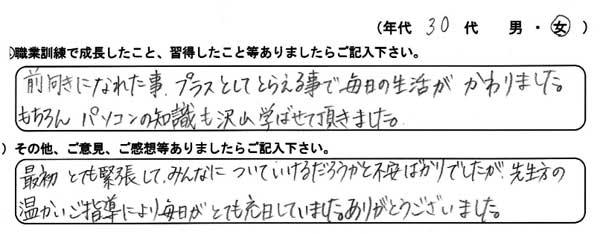 (年代 30 代 男・女)
)職業訓練で成長したこと、習得したこと等ありましたらご記入下さい。
前向きになれた事、プラスとしてとらえる事で毎日の生活が かわりました。
もちろん パソコンの知識も沢山学ばせて頂きました。
) その他、ご意見、ご感想等ありましたらご記入下さい。
最初 とても緊張して、みんなに ついていけるだろうかと不安ばかりでしたが、先生方の
温かいご指導により毎日が とても充日していました。ありがとうございました。